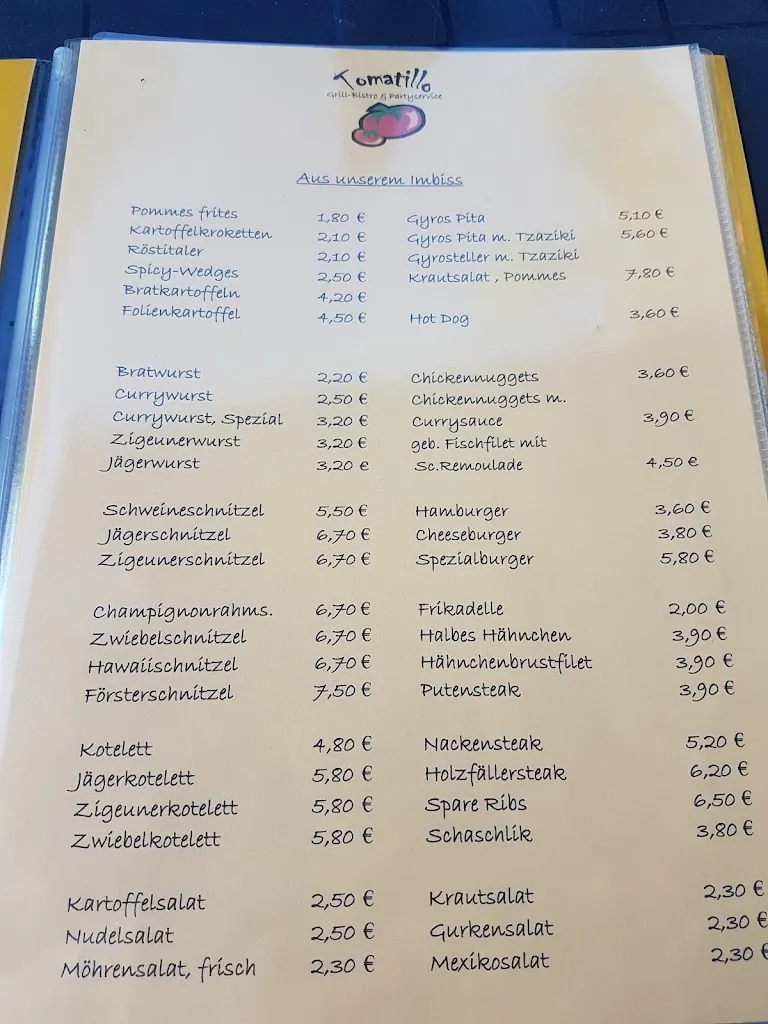 Tomatillo
Grill-Bistro & Partyservice
Aus unserem Imbiss
Pommes frites 1,80 €
Kartoffelkroketten 2,10 €
Röstitaler 2,10 €
Spicy-Wedges 2,50 €
Bratkartoffeln 4,20 €
Folienkartoffel 4,50 €
Gyros Pita 5,10 €
Gyros Pita m. Tzaziki 5,60 €
Gyrosteller m. Tzaziki
Krautsalat , Pommes 7,80 €
Hot Dog 3,60 €
Bratwurst 2,20 €
Currywurst 2,50 €
Currywurst, Spezial 3,20 €
Zigeunerwurst 3,20 €
Jägerwurst 3,20 e
Chickennuggets 3,60 €
Chickennuggets m.
Currysauce 3,90 €
geb. Fischfilet mit
Sc.Remoulade 4,50 €
Schweineschnitzel 5,50 €
Jägerschnitzel 6,70 €
Zigeunerschnitzel 6,70 €
Hamburger 3,60 €
Cheeseburger 3,80 €
Spezialburger 5,80 €
Champignonrahms. 6,70 €
Zwiebelschnitzel 6,70 €
Hawaiischnitzel 6,70 €
Försterschnitzel 7,50 €
Frikadelle 2,00 €
Halbes Hähnchen 3,90 €
Hähnchenbrustfilet 3,90 €
Putensteak 3,90 €
Kotelett 4,80 €
Jägerkotelett 5,80 €
Zigeunerkotelett 5,80 €
Zwiebelkotelett 5,80 €
Nackensteak 5,20 €
Holzfällersteak 6,20 €
Spare Ribs 6,50 €
Schaschlik 3,80 €
Kartoffelsalat 2,50 €
Nudelsalat 2,50 €
Möhrensalat, frisch 2,30 €
Krautsalat 2,30 €
Gurkensalat 2,30 €
Mexikosalat 2,30 €